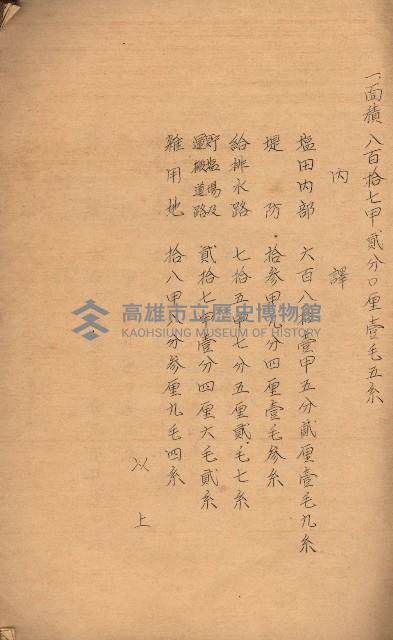 一、面積 八百拾七甲貳分〇厘壹毛五糸
内譯
塩田内部 六百八拾壹甲五分貳厘壹毛九糸
堤防 拾参甲九分四厘壹毛參糸
給排水路 七拾五甲七分五厘貳毛七糸
貯塩場及運搬道路 貳拾七甲壹分四厘六毛貳糸
雜用地 拾八甲八分参厘九毛四糸
以上
高雄市立歷史博物館
KAOHSIUNG MUSEUM OF HISTORY